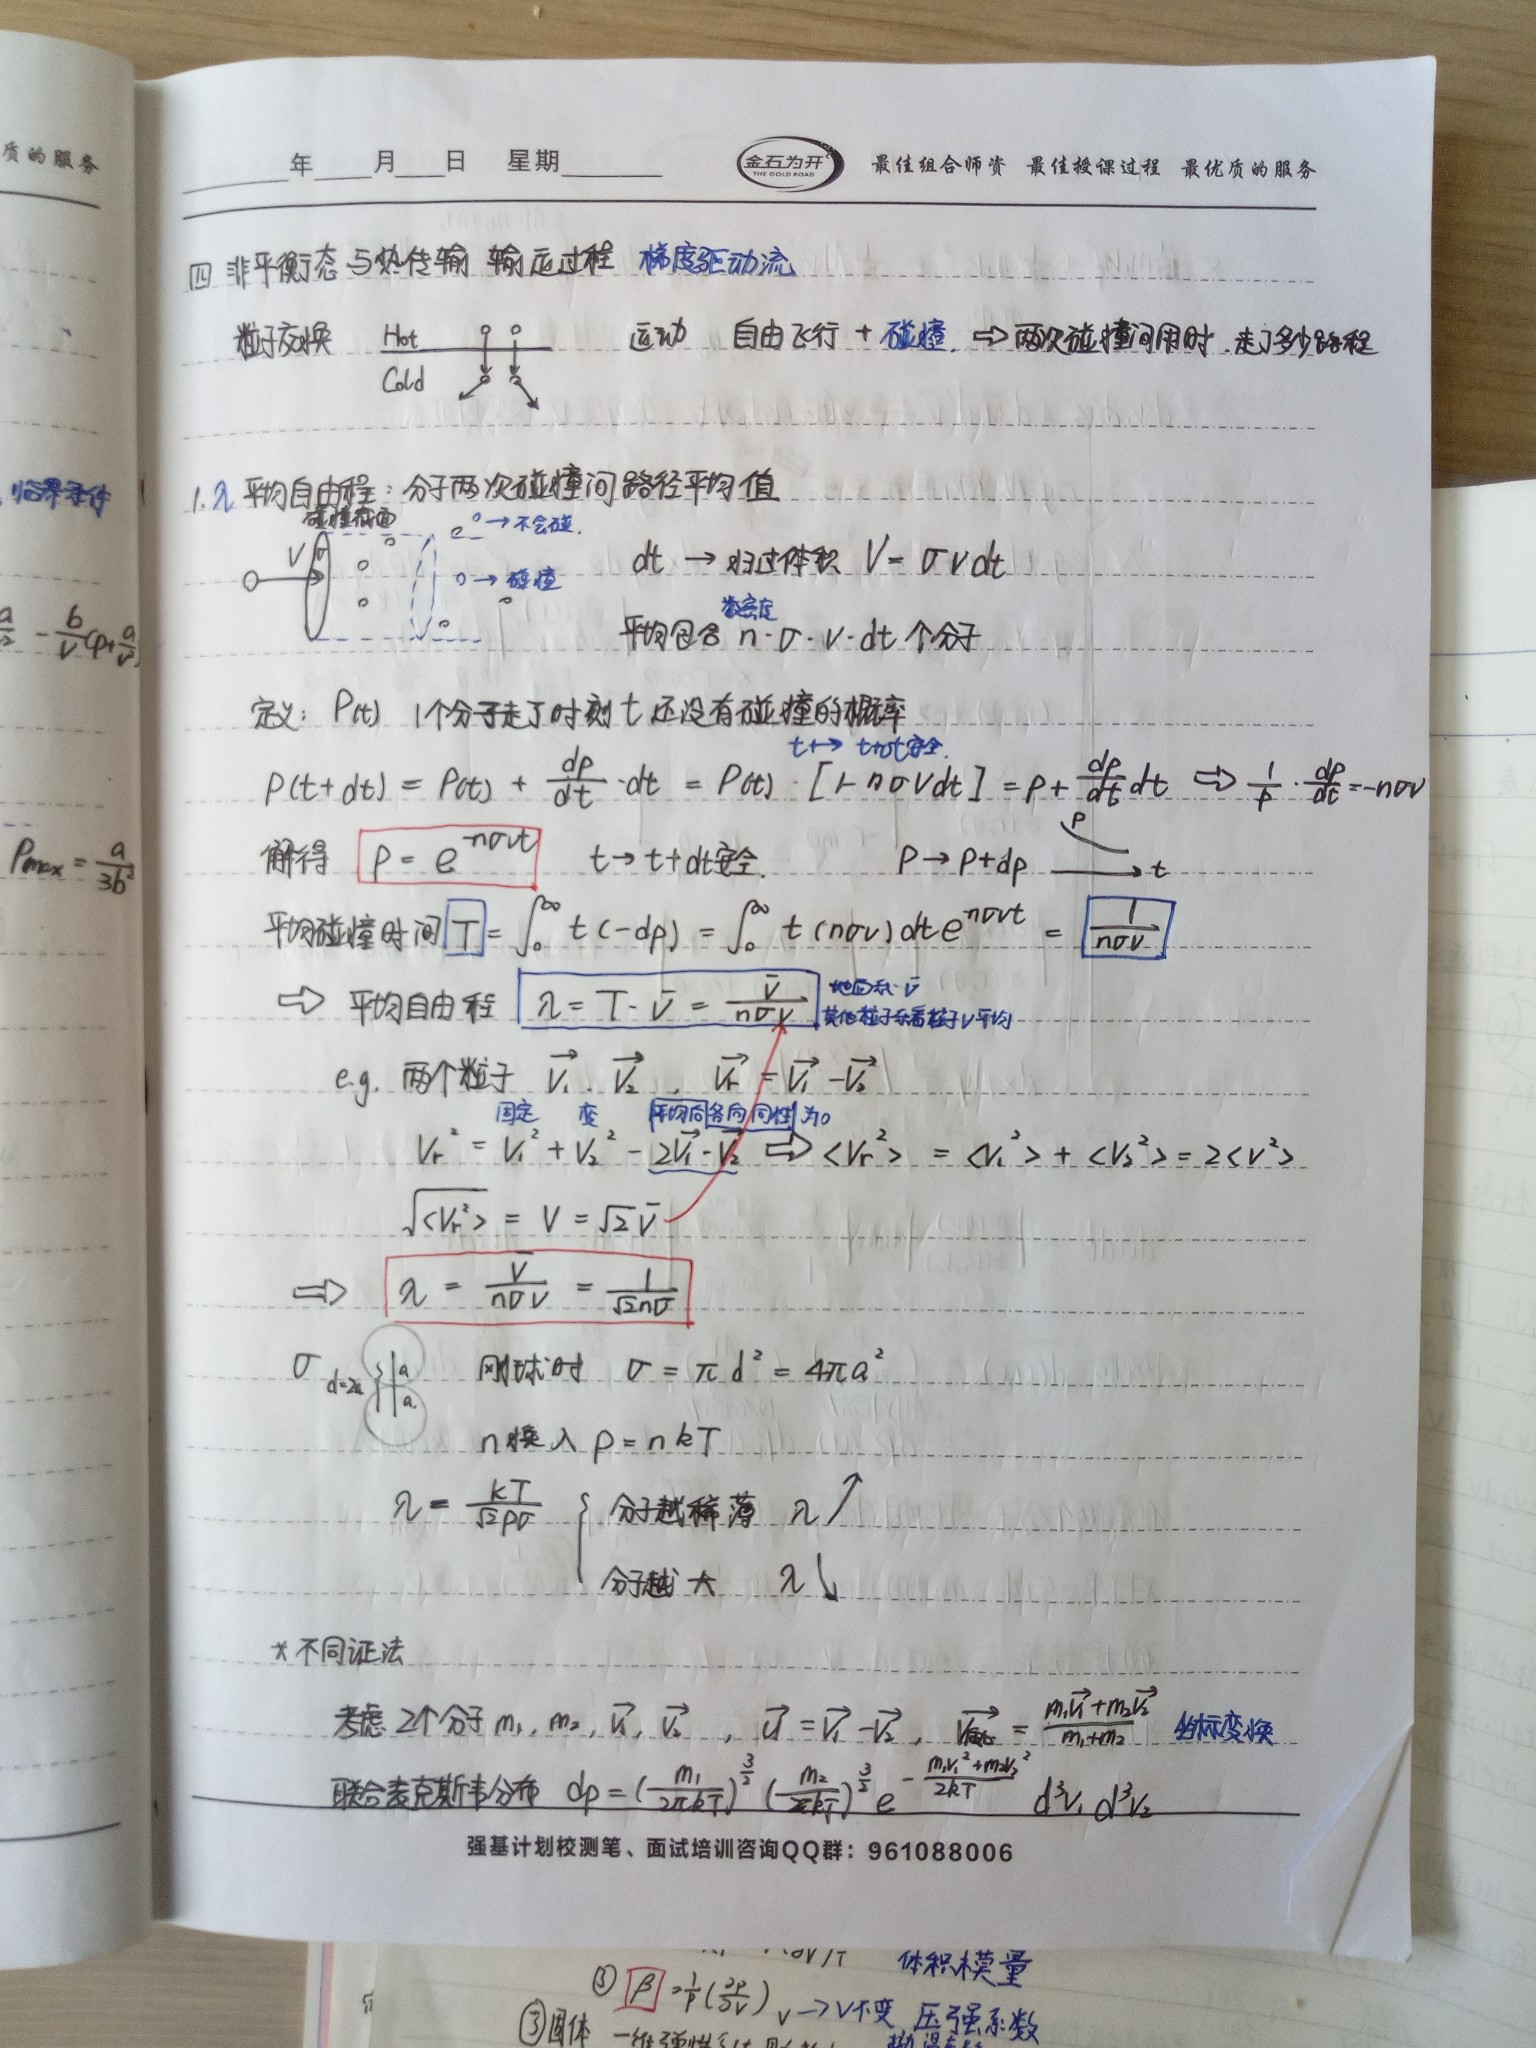 质的服务
临界条件
Pmax = a/3b²
____年____月____日 星期____ 金石为开 THE GOLD ROAD 最佳组合师资 最佳授课过程 最优质的服务
四 非平衡态与热传输 输运过程 梯度驱动流
粒子交换 Hot 运动 自由飞行 + 碰撞. ⇒ 两次碰撞间用时.走了多少路程
Cold
1. λ 平均自由程: 分子两次碰撞间路径平均值
碰撞截面 → 不会碰.
V → 碰撞 dt → 扫过体积 V = σvdt
数密度
平均包含 n·σ·v·dt 个分子
定义: P(t) 1个分子走了时刻 t 还没有碰撞的概率
t → t+dt安全.
P(t+dt) = P(t) + dp/dt ·dt = P(t) · [1-nσVdt] = P + dp/dt dt ⇒ 1/P · dp/dt = -nσv
解得 P = e^-nσvt t → t+dt安全. P → P+dp P t
平均碰撞时间 T = ∫₀^∞ t(-dp) = ∫₀^∞ t(nσv)dt e^-nσvt = 1/nσv
⇒ 平均自由程 λ = T·v̄ = v̄/nσv 地面系: v̄
其他粒子系看粒子v平均
e.g. 两个粒子 V₁⃗. V₂⃗, Vr⃗ = V₁⃗ - V₂⃗
固定 变 平均同各向同性 为0
Vr² = V₁² + V₂² - 2V₁⃗·V₂⃗ ⇒ <Vr²> = <V₁²> + <V₂²> = 2<v²>
√<Vr²> = V = √2 v̄
⇒ λ = v̄/nσv = 1/√2nσ
σ d=2a a a 刚球时 σ = πd² = 4πa²
n换入 P = nkT
λ = kT/√2Pσ { 分子越稀薄 λ↗
分子越大 λ↘
* 不同证法
考虑 2个分子 m₁, m₂, V₁⃗, V₂⃗, U⃗ = V₁⃗ - V₂⃗, = m₁V₁⃗+m₂V₂⃗/m₁+m₂ 坐标变换
联合麦克斯韦分布 dp = (m₁/2πkT)^3/2 (m₂/2πkT)^3/2 e^-(m₁v₁²+m₂v₂²)/2kT d³v₁ d³v₂
强基计划校测笔、面试培训咨询QQ群：961088006
体积模量
③ β = 1/P (∂P/∂V)v → V不变 压强系数
③固体